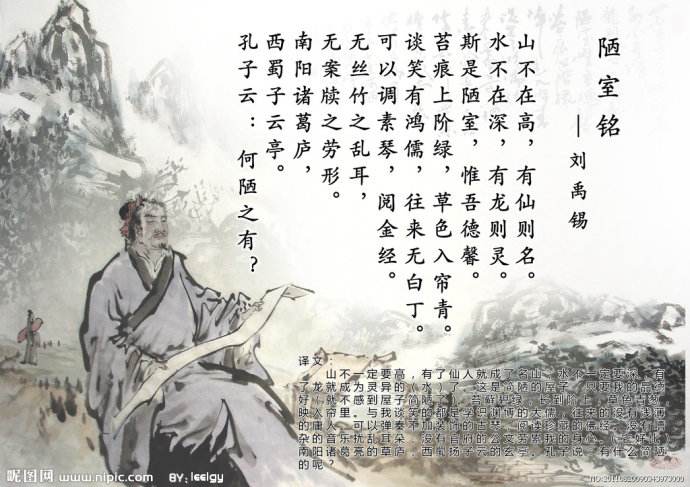 陋室铭
—刘禹锡
山不在高，有仙则名。
水不在深，有龙则灵。
斯是陋室，惟吾德馨。
苔痕上阶绿，草色入帘青。
谈笑有鸿儒，往来无白丁。
可以调素琴，阅金经。
无丝竹之乱耳，
无案牍之劳形。
南阳诸葛庐，
西蜀子云亭。
孔子云：何陋之有？
译文：
山不一定要高，有了仙人就成了名山；水不一定要深，有
了龙就成为灵异的（水）了。这是简陋的屋子，只要我的品德
好（就不感到屋子简陋了）。苔藓碧绿，长到阶上，草色青葱，
映入帘里。与我谈笑的都是学识渊博的大儒，往来的没有浅薄
的唐人。可以弹奏不加装饰的古琴，阅读珍藏的佛经。没有嘈
杂的音乐扰乱耳朵，没有官府的公文劳累我的身心。（它好比）
南阳诸葛亮的草庐，西蜀扬子云的玄亭。孔子说：有什么简陋
的呢？
昵图网 www.nipic.com
BY: leelgy